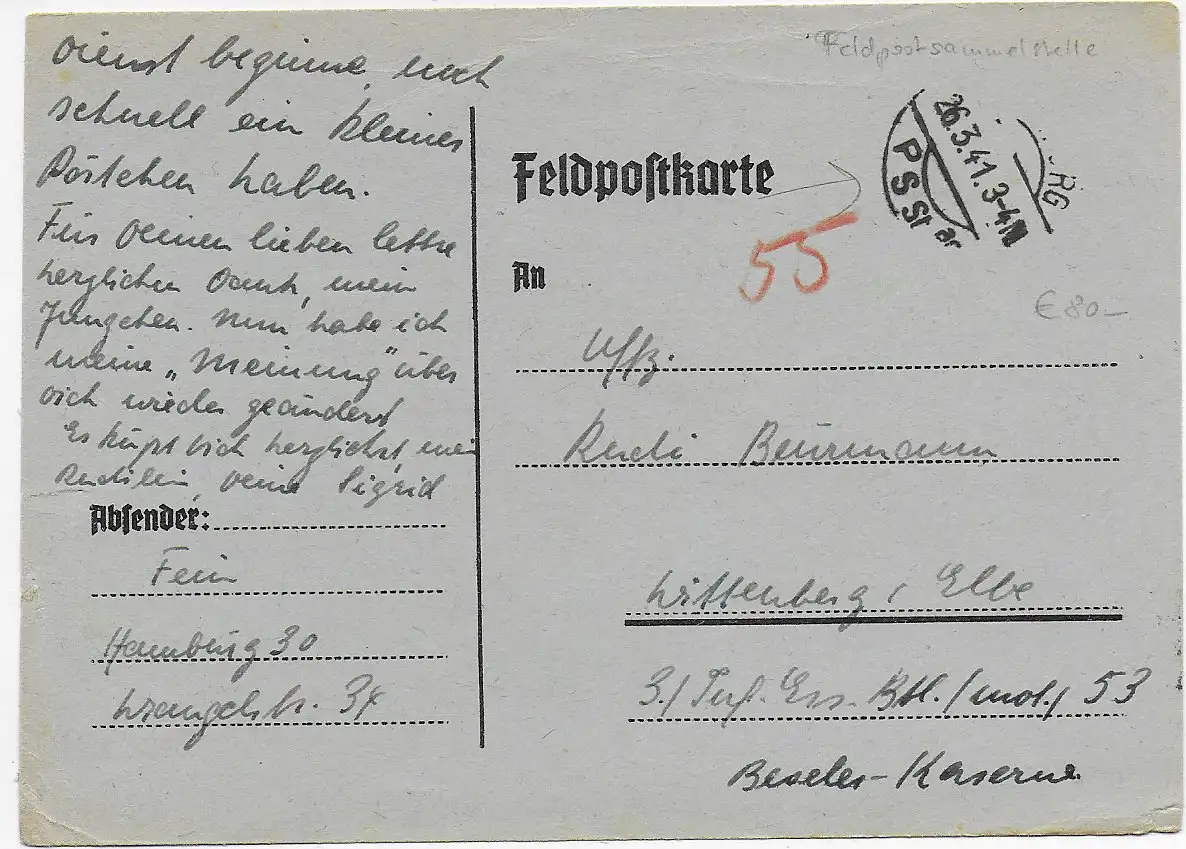 Dienst beginne, noch
schnell ein kleines
Pöstchen haben.
Für Deinen lieben lettre
herzlichen Dank, mein
Jungchen. Nun habe ich
meine „Meinung" über
Dich wieder geändert
Es küßt Dich herzlichst, mein
Rudilein, Deine Sigrid
Absender:
Fein
Hamburg 30
Wrangelstr.
Feldpostsammelstelle
26.3.41.3-4N
PSSt
RG
Feldpostkarte
55
An
€ 80-
Uffz.
Rudi Beurmann
Wittenberg, Elbe
3./ Inf. Ers. Btl. /mot./ 53
Beseler-Kaserne